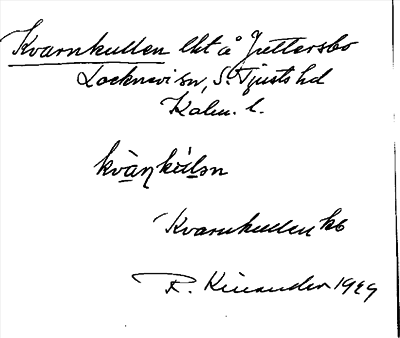 Kvarnkullen lht å Juttersbo
Locknevi sn, S. Tjusts hd
Kalm. l.
kvàŋkúlən
Kvarnkullen kb
R. Kinander 1929